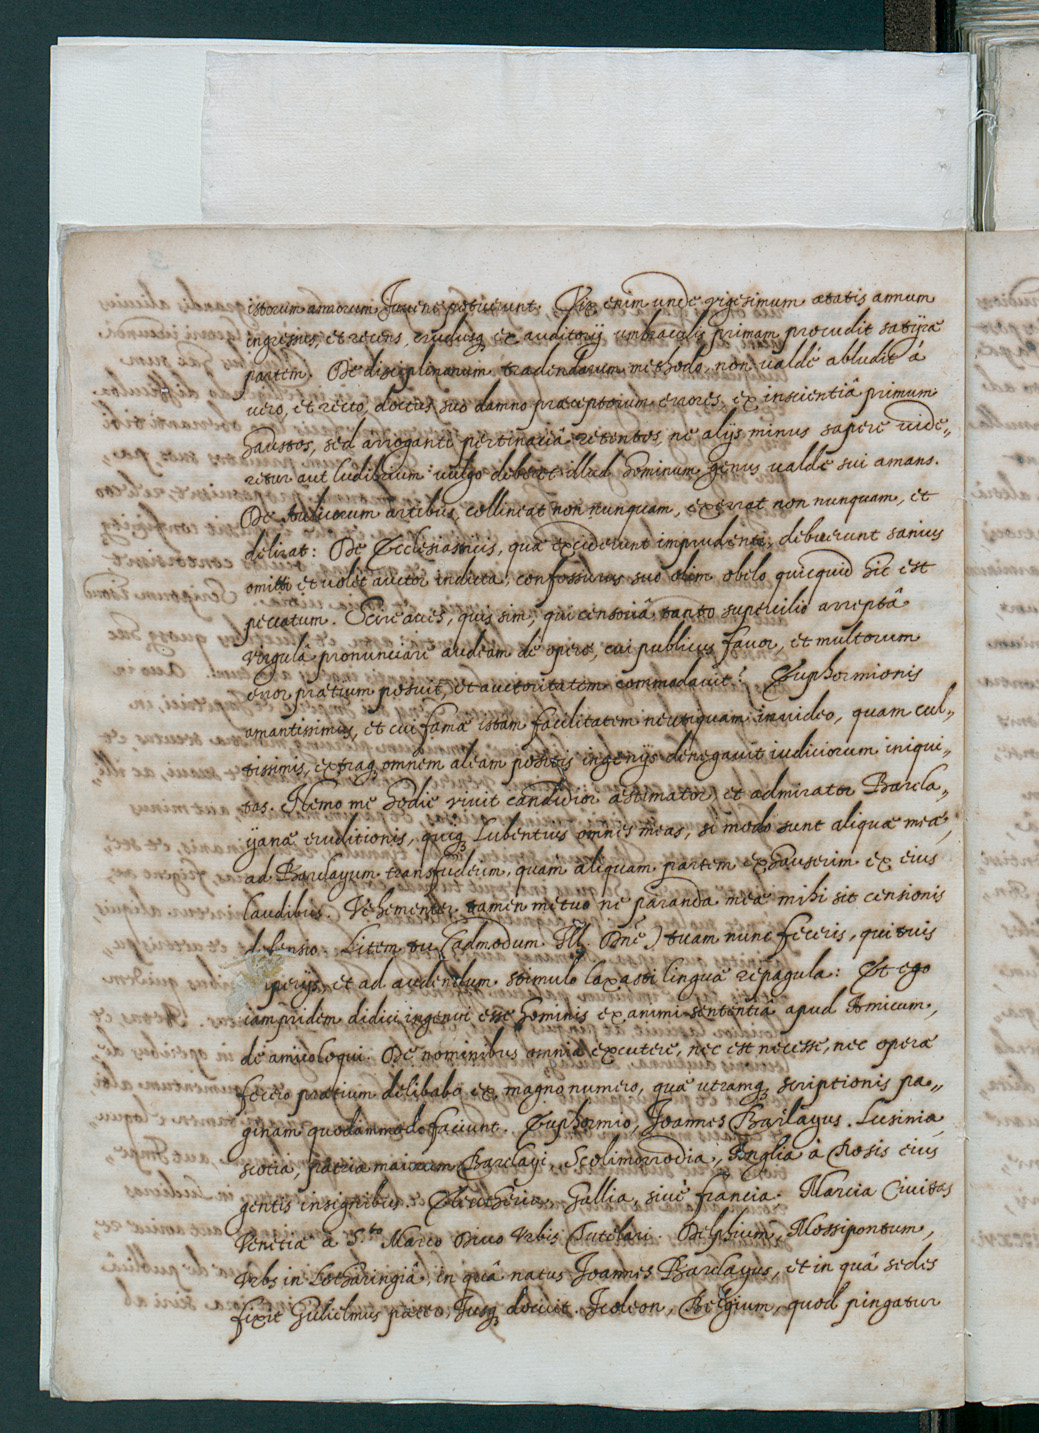 istorum annorum Iuvene potuerunt. Vix enim unde vigesimum ætatis annum
ingressus, et recens, crudusq; ex auditorij umbraculis primam procudit satyræ
partem. De disciplinarum tradendarum methodo, non valdè abludit à
vero, et recto, doctus suo damno præceptorum errores, ex inscientiâ primum
haustos, sed arroganti pertinaciâ retentos, ne alijs minus sapere vide„
retur aut ludibrium vulgo deberet illud hominum genus valde sui amans.
De Aulicorum artibus, collineat non nunquam, exerrat non nunquam, et
delirat: De Ecclesiasticis, quæ exciderunt imprudenti, debuerunt sanius
omitti et volet auctor indicta, confossurus suo olim obelo, quicquid hic est
peccatum. Scire aves, quis sim, qui censoriâ tanto supercilio arreptâ
virgulâ pronunciare audeam de opere, cui publicus favor, et multorum
error prætium posuit, et auctoritatem commodavit? Euphormionis
amantissimus, et cui famæ istam facilitatem neutiquam invideo, quam cul„
tissimis, extraq; omnem aleam positis ingenijs denegavit iudiciorum iniqui„
tas. Nemo me hodie vivit candidior æstimator, et admirator Barcla„
yanæ eruditionis, quiq; lubentius omnes meas, si modo sunt aliquæ meæ,
ad Barclayum transfuderim, quam aliquam partem exhauserim ex eius
laudibus. Vehementer tamen metuo ne paranda meæ mihi sit censionis
defensio. Litem tu (admodum Ill. Dne) tuam nunc feceris, qui tuis
perijs, et ad audendum stimulo laxasti linguæ repagula: Et ego
iampridem didici ingenui esse hominis ex animi sententiâ apud Amicum,
de amico loqui. De nominibus omnia excutere, nec est necesse, nec operæ
fecero prætium delibabo ex magno numero, quæ utramq; scriptionis pa„
ginam quodammodo faciunt. Euphormio, Joannes Barclayus. Lusinia
scotia, patria maiorum Barclayi, Scolimorrodia, Anglia à Rosis eius
gentis insignibus. Eleutheria, Gallia, sivè francia. Marcia Civitas
Venetiæ a S.to Marco Divo Urbis Tutelari. Delphium, Mossipontum,
Urbs in Lotharingiâ, in quâ natus Joannes Barclayus, et in quâ sedes
fixit Gulielmus pater, Iusq; docuit. Icoleon, Belgium, quod pingatur